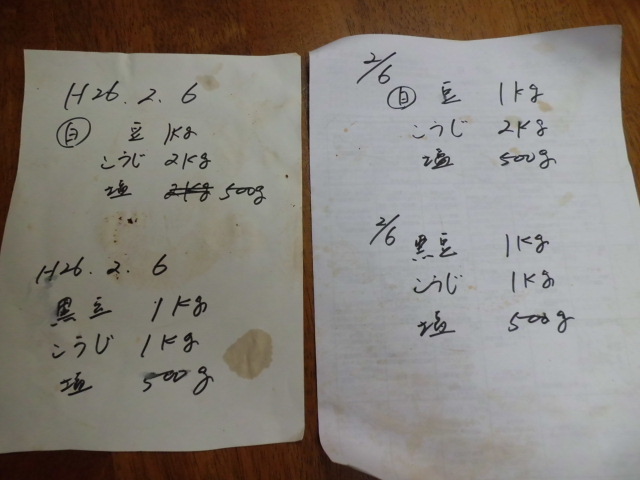 H26.2.6
白 豆 1Kg
こうじ 2Kg
塩 2Kg 500g
H26.2.6
黒豆 1Kg
こうじ 1Kg
塩 500g
2/6
白 豆 1Kg
こうじ 2Kg
塩 500g
2/6
黒豆 1Kg
こうじ 1Kg
塩 500g